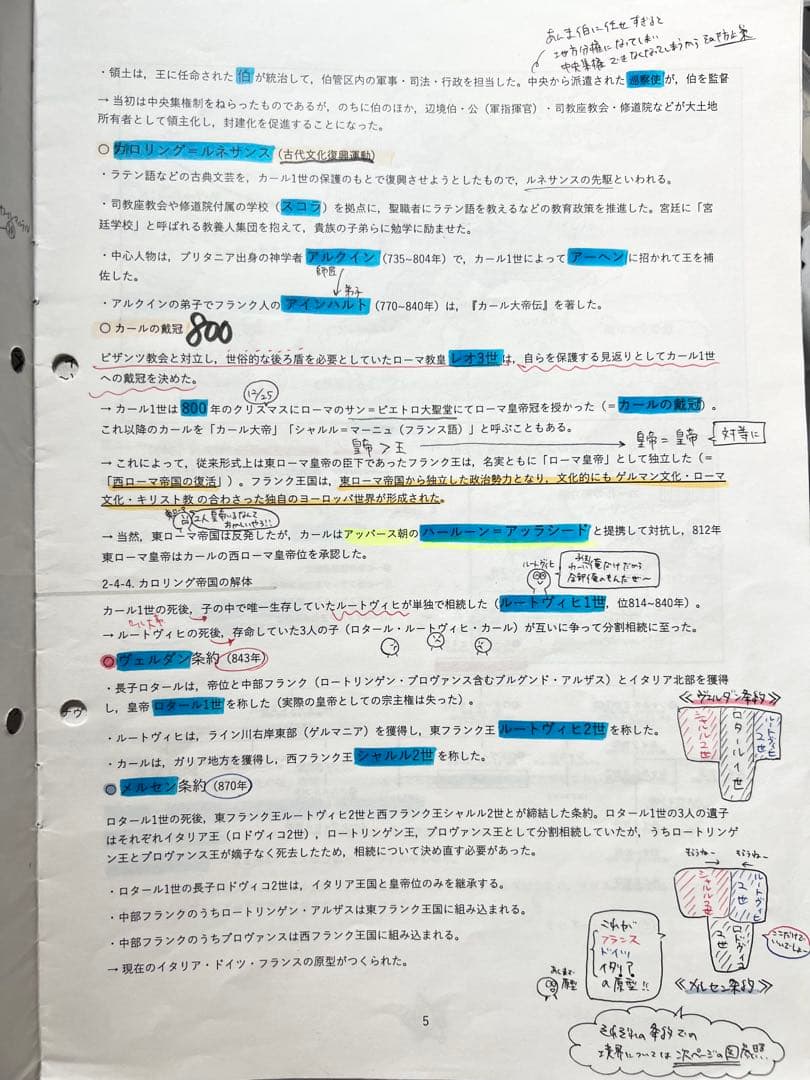 あんま伯に任せすぎると
地方分権になってしまい
中央集権できなくなってしまうから
・領土は，王に任命された伯が統治して，伯管区内の軍事・司法・行政を担当した。中央から派遣された巡察使が，伯を監督
→ 当初は中央集権制をねらったものであるが，のちに伯のほか，辺境伯・公（軍指揮官）・司教座教会・修道院などが大土地
所有者として領主化し，封建化を促進することになった。
○ カロリング＝ルネサンス（古代文化復興運動）
・ラテン語などの古典文芸を，カール1世の保護のもとで復興させようとしたもので，ルネサンスの先駆といわれる。
・司教座教会や修道院付属の学校（スコラ）を拠点に，聖職者にラテン語を教えるなどの教育政策を推進した。宮廷に「宮
廷学校」と呼ばれる教養人集団を抱えて，貴族の子弟らに勉学に励ませた。
・中心人物は，ブリタニア出身の神学者アルクイン（735~804年）で，カール1世によってアーヘンに招かれて王を補
佐した。
師匠
弟子
・アルクインの弟子でフランク人のアインハルト（770~840年）は，『カール大帝伝』を著した。
○ カールの戴冠 800
ビザンツ教会と対立し，世俗的な後ろ盾を必要としていたローマ教皇レオ3世は，自らを保護する見返りとしてカール1世
への戴冠を決めた。
12/25
→ カール1世は800年のクリスマスにローマのサン＝ピエトロ大聖堂にてローマ皇帝冠を授かった（＝カールの戴冠）。
これ以降のカールを「カール大帝」「シャルル＝マーニュ（フランス語）」と呼ぶこともある。
皇帝 > 王 → 皇帝 = 皇帝 対等に
→ これによって，従来形式上は東ローマ皇帝の臣下であったフランク王は，名実ともに「ローマ皇帝」として独立した（＝
「西ローマ帝国の復活」）。フランク王国は，東ローマ帝国から独立した政治勢力となり，文化的にも ゲルマン文化・ローマ
文化・キリスト教 の合わさった独自のヨーロッパ世界が形成された。
2人皇帝いるなんておかしいやろ!!
→ 当然，東ローマ帝国は反発したが，カールはアッバース朝のハールーン＝アッラシードと提携して対抗し，812年
東ローマ皇帝はカールの西ローマ皇帝位を承認した。
ルートヴィヒ
2-4-4. カロリング帝国の解体
カール1世の死後，子の中で唯一生存していたルートヴィヒが単独で相続した（ルートヴィヒ1世，位814~840年）。
→ ルートヴィヒの死後，存命していた3人の子（ロタール・ルートヴィヒ・カール）が互いに争って分割相続に至った。
ヴェルダン条約（843年）
・長子ロタールは，帝位と中部フランク（ロートリンゲン・プロヴァンス含むブルグンド・アルザス）とイタリア北部を獲得
し，皇帝ロタール1世を称した（実際の皇帝としての宗主権は失った）。
《ヴェルダン条約》
シャルル2世
ロタール1世
ルートヴィヒ2世
・ルートヴィヒは，ライン川右岸東部（ゲルマニア）を獲得し，東フランク王ルートヴィヒ2世を称した。
・カールは，ガリア地方を獲得し，西フランク王シャルル2世を称した。
メルセン条約（870年）
ロタール1世の死後，東フランク王ルートヴィヒ2世と西フランク王シャルル2世とが締結した条約。ロタール1世の3人の遺子
はそれぞれイタリア王（ロドヴィコ2世），ロートリンゲン王，プロヴァンス王として分割相続していたが，うちロートリンゲ
ン王とプロヴァンス王が嫡子なく死去したため，相続について決め直す必要があった。
もらうねー
もらうねー
シャルル2世
ルートヴィヒ2世
ロドヴィコ2世
ここだけでいいでしょー
《メルセン条約》
・ロタール1世の長子ロドヴィコ2世は，イタリア王国と皇帝位のみを継承する。
・中部フランクのうちロートリンゲン・アルザスは東フランク王国に組み込まれる。
・中部フランクのうちプロヴァンスは西フランク王国に組み込まれる。
→ 現在のイタリア・ドイツ・フランスの原型がつくられた。
これが
フランス
ドイツ
イタリア
の原型!!
あくまで原型
5
それぞれの条約での
境界については次ページの図参照